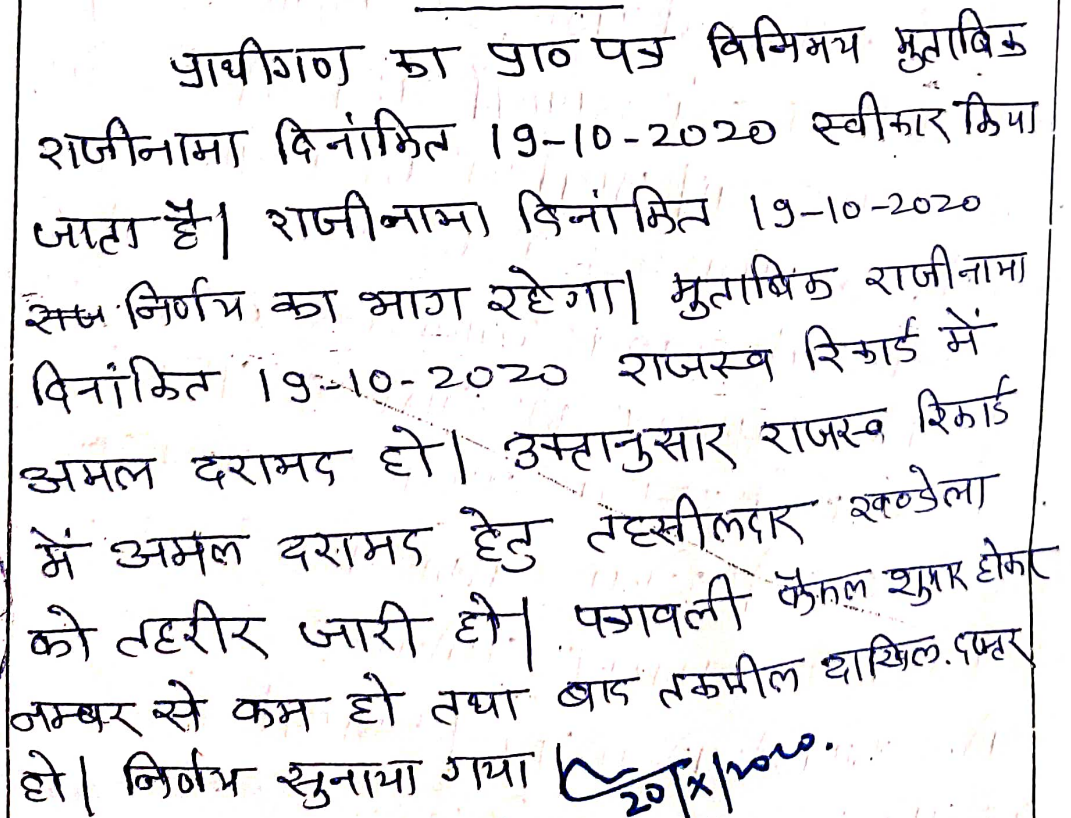 प्रार्थीगण का प्रा० पत्र विनिमय मुताबिक
राजीनामा दिनांकित 19-10-2020 स्वीकार किया
जाता है। राजीनामा दिनांकित 19-10-2020
निर्णय का भाग रहेगा। मुताबिक राजीनामा
दिनांकित 19-10-2020 राजस्व रिकार्ड में
अमल दरामद हो। उक्तानुसार राजस्व रिकार्ड
में अमल दरामद हेतु तहसीलदार खण्डेला
को तहरीर जारी हो। पत्रावली फैसल शुमार होकर
नम्बर से कम हो तथा बाद तकमील दाखिल दफ्तर
हो। निर्णय सुनाया गया।
20/X/2020.